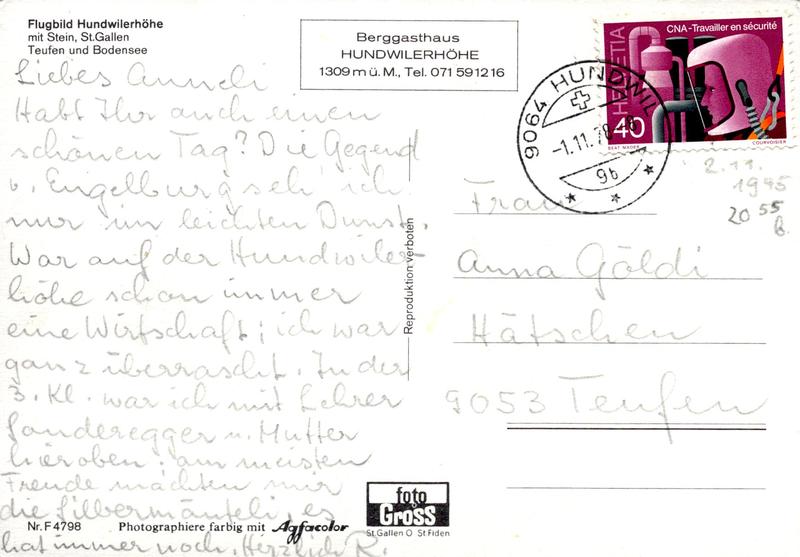 Flugbild Hundwilerhöhe
mit Stein, St.Gallen
Teufen und Bodensee
Berggasthaus
HUNDWILERHÖHE
1309 m ü. M., Tel. 071 59 12 16
CNA-Travailler en sécurité
HELVETIA
40
BEAT MADER
COURVOISIER
9064 HUNDWIL
-1.11.78
9b
2.11.
1945
20 55
Liebes Anneli
Habt Ihr auch einen
schönen Tag? Die Gegend
v. Engelburg seh' ich
nur im leichten Dunst.
War auf der Hundwiler-
höhe schon immer
eine Wirtschaft; ich war
ganz überrascht. In der
3. Kl. war ich mit Lehrer
Sonderegger u. Mutter
hier oben; am meisten
Freude machten mir
die Silbermänteli, es
hat immer noch. Herzlich R.
Reproduktion verboten
Frau
Anna Göldi
Hätschen
9053 Teufen
Nr. F 4798
Photographiere farbig mit Agfacolor
foto
Gross
St.Gallen O St Fiden